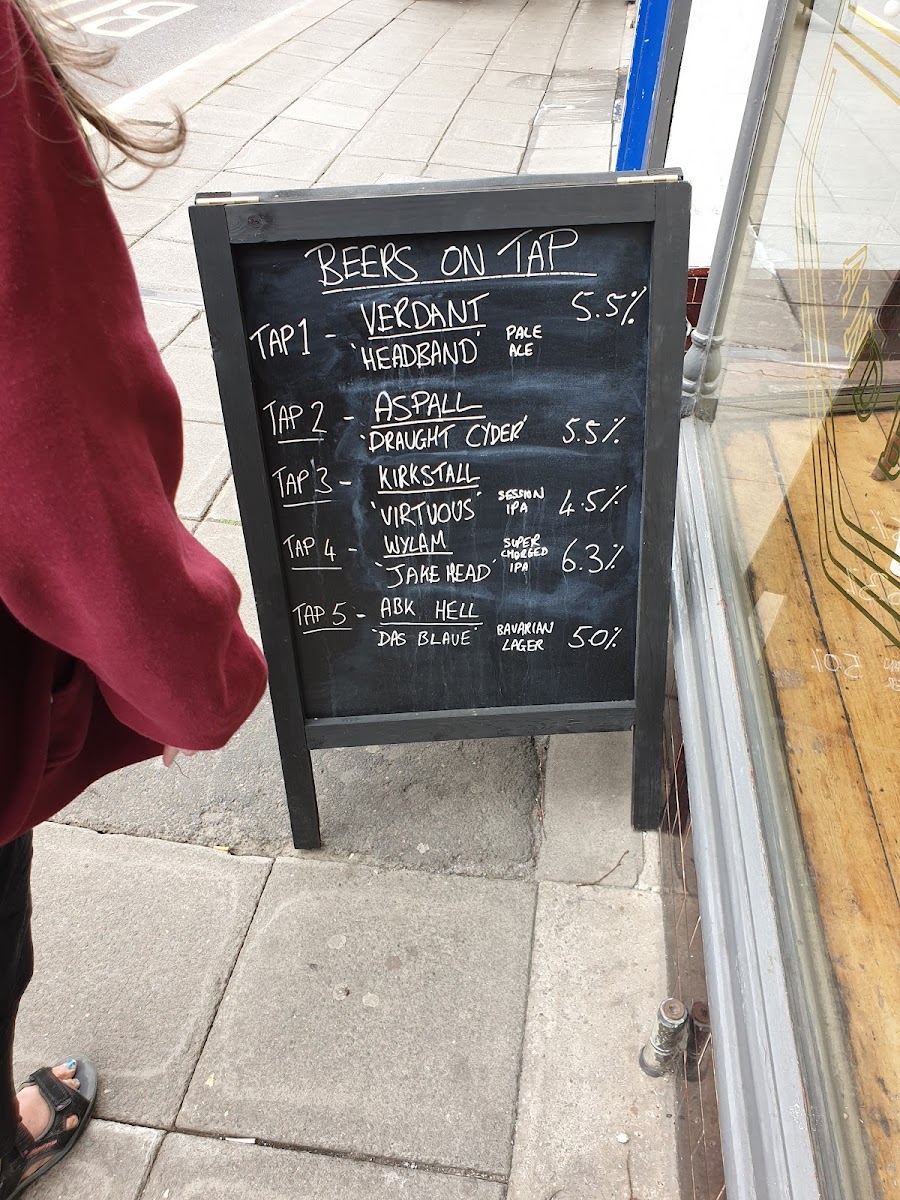 BEERS ON TAP
TAP 1 - VERDANT 5.5%
'HEADBAND' PALE ALE
TAP 2 - ASPALL
'DRAUGHT CYDER' 5.5%
TAP 3 - KIRKSTALL
'VIRTUOUS' SESSION IPA 4.5%
TAP 4 - WYLAM SUPER CHARGED IPA 6.3%
'JAKE HEAD'
TAP 5 - ABK HELL
'DAS BLAUE' BAVARIAN LAGER 5.0%